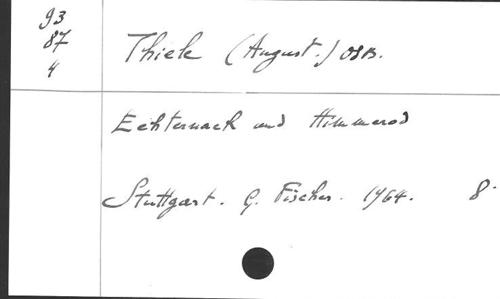 93
87
4
Thiele (August.) OSB.
Echternach und Himmerod
Stuttgart. G. Fischer. 1964. 8°